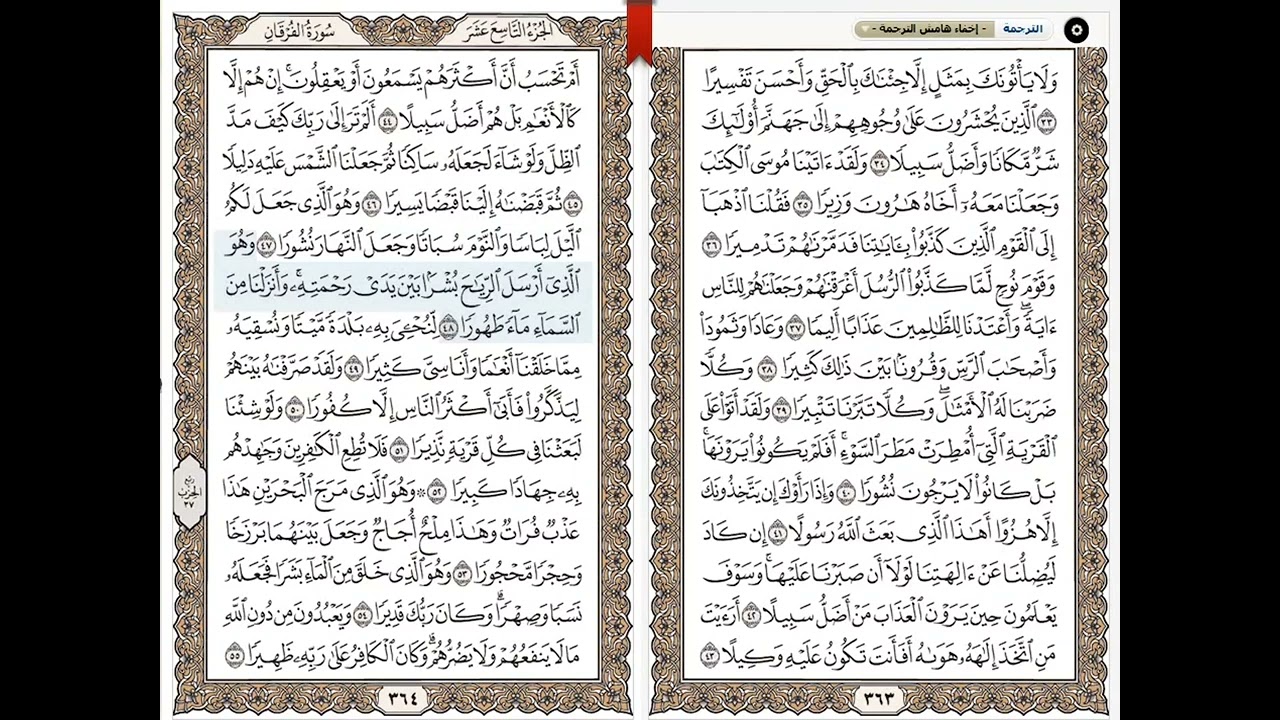 الترجمة
- إخفاء هامش الترجمة -
وَلَا يَأْتُونَكَ بِمَثَلٍ إِلَّا جِئْنَٰكَ بِٱلْحَقِّ وَأَحْسَنَ تَفْسِيرًا
٣٣ ٱلَّذِينَ يُحْشَرُونَ عَلَىٰ وُجُوهِهِمْ إِلَىٰ جَهَنَّمَ أُو۟لَٰٓئِكَ
شَرٌّ مَّكَانًا وَأَضَلُّ سَبِيلًا ٣٤ وَلَقَدْ ءَاتَيْنَا مُوسَى ٱلْكِتَٰبَ
وَجَعَلْنَا مَعَهُۥٓ أَخَاهُ هَٰرُونَ وَزِيرًا ٣٥ فَقُلْنَا ٱذْهَبَآ
إِلَى ٱلْقَوْمِ ٱلَّذِينَ كَذَّبُوا۟ بِـَٔايَٰتِنَا فَدَمَّرْنَٰهُمْ تَدْمِيرًا ٣٦
وَقَوْمَ نُوحٍ لَّمَّا كَذَّبُوا۟ ٱلرُّسُلَ أَغْرَقْنَٰهُمْ وَجَعَلْنَٰهُمْ لِلنَّاسِ
ءَايَةً ۖ وَأَعْتَدْنَا لِلظَّٰلِمِينَ عَذَابًا أَلِيمًا ٣٧ وَعَادًا وَثَمُودَا۟
وَأَصْحَٰبَ ٱلرَّسِّ وَقُرُونًۢا بَيْنَ ذَٰلِكَ كَثِيرًا ٣٨ وَكُلًّا
ضَرَبْنَا لَهُ ٱلْأَمْثَٰلَ ۖ وَكُلًّا تَبَّرْنَا تَتْبِيرًا ٣٩ وَلَقَدْ أَتَوْا۟ عَلَى
ٱلْقَرْيَةِ ٱلَّتِىٓ أُمْطِرَتْ مَطَرَ ٱلسَّوْءِ ۚ أَفَلَمْ يَكُونُوا۟ يَرَوْنَهَا ۚ
بَلْ كَانُوا۟ لَا يَرْجُونَ نُشُورًا ٤٠ وَإِذَا رَأَوْكَ إِن يَتَّخِذُونَكَ
إِلَّا هُزُوًا أَهَٰذَا ٱلَّذِى بَعَثَ ٱللَّهُ رَسُولًا ٤١ إِن كَادَ
لَيُضِلُّنَا عَنْ ءَالِهَتِنَا لَوْلَآ أَن صَبَرْنَا عَلَيْهَا ۚ وَسَوْفَ
يَعْلَمُونَ حِينَ يَرَوْنَ ٱلْعَذَابَ مَنْ أَضَلُّ سَبِيلًا ٤٢ أَرَءَيْتَ
مَنِ ٱتَّخَذَ إِلَٰهَهُۥ هَوَىٰهُ أَفَأَنتَ تَكُونُ عَلَيْهِ وَكِيلًا ٤٣
٣٦٣
الجُزْءُ التَّاسِعَ عَشَرَ
سُورَةُ الفُرْقَانِ
أَمْ تَحْسَبُ أَنَّ أَكْثَرَهُمْ يَسْمَعُونَ أَوْ يَعْقِلُونَ ۚ إِنْ هُمْ إِلَّا
كَٱلْأَنْعَٰمِ بَلْ هُمْ أَضَلُّ سَبِيلًا ٤٤ أَلَمْ تَرَ إِلَىٰ رَبِّكَ كَيْفَ مَدَّ
ٱلظِّلَّ وَلَوْ شَآءَ لَجَعَلَهُۥ سَاكِنًا ثُمَّ جَعَلْنَا ٱلشَّمْسَ عَلَيْهِ دَلِيلًا
٤٥ ثُمَّ قَبَضْنَٰهُ إِلَيْنَا قَبْضًا يَسِيرًا ٤٦ وَهُوَ ٱلَّذِى جَعَلَ لَكُمُ
ٱلَّيْلَ لِبَاسًا وَٱلنَّوْمَ سُبَاتًا وَجَعَلَ ٱلنَّهَارَ نُشُورًا ٤٧ وَهُوَ
ٱلَّذِىٓ أَرْسَلَ ٱلرِّيَٰحَ بُشْرًۢا بَيْنَ يَدَىْ رَحْمَتِهِۦ ۚ وَأَنزَلْنَا مِنَ
ٱلسَّمَآءِ مَآءً طَهُورًا ٤٨ لِّنُحْـِۧىَ بِهِۦ بَلْدَةً مَّيْتًا وَنُسْقِيَهُۥ
مِمَّا خَلَقْنَآ أَنْعَٰمًا وَأَنَاسِىَّ كَثِيرًا ٤٩ وَلَقَدْ صَرَّفْنَٰهُ بَيْنَهُمْ
لِيَذَّكَّرُوا۟ فَأَبَىٰٓ أَكْثَرُ ٱلنَّاسِ إِلَّا كُفُورًا ٥٠ وَلَوْ شِئْنَا
لَبَعَثْنَا فِى كُلِّ قَرْيَةٍ نَّذِيرًا ٥١ فَلَا تُطِعِ ٱلْكَٰفِرِينَ وَجَٰهِدْهُم
بِهِۦ جِهَادًا كَبِيرًا ٥٢ ۞ وَهُوَ ٱلَّذِى مَرَجَ ٱلْبَحْرَيْنِ هَٰذَا
عَذْبٌ فُرَاتٌ وَهَٰذَا مِلْحٌ أُجَاجٌ وَجَعَلَ بَيْنَهُمَا بَرْزَخًا
وَحِجْرًا مَّحْجُورًا ٥٣ وَهُوَ ٱلَّذِى خَلَقَ مِنَ ٱلْمَآءِ بَشَرًا فَجَعَلَهُۥ
نَسَبًا وَصِهْرًا ۗ وَكَانَ رَبُّكَ قَدِيرًا ٥٤ وَيَعْبُدُونَ مِن دُونِ ٱللَّهِ
مَا لَا يَنفَعُهُمْ وَلَا يَضُرُّهُمْ ۗ وَكَانَ ٱلْكَافِرُ عَلَىٰ رَبِّهِۦ ظَهِيرًا ٥٥
ربع
الحزب
٣٧
٣٦٤